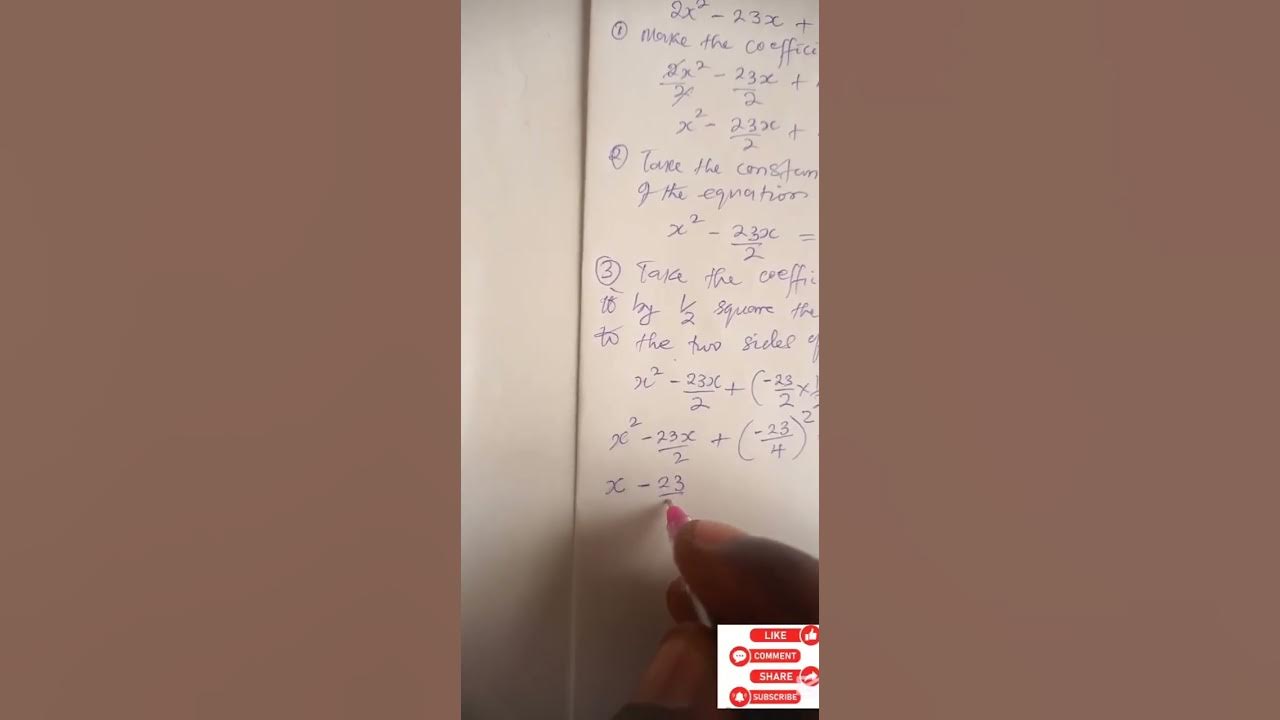 2x² - 23x +
① Make the coeffici
2x²/2 - 23x/2 +
x² - 23x/2 +
② Take the constan
of the equation
x² - 23x/2 =
③ Take the coeffi
it by 1/2 square the
to the two sides of
x² - 23x/2 + (-23/2 × 1/2
x² - 23x/2 + (-23/4)²
x - 23
LIKE
COMMENT
SHARE
SUBSCRIBE